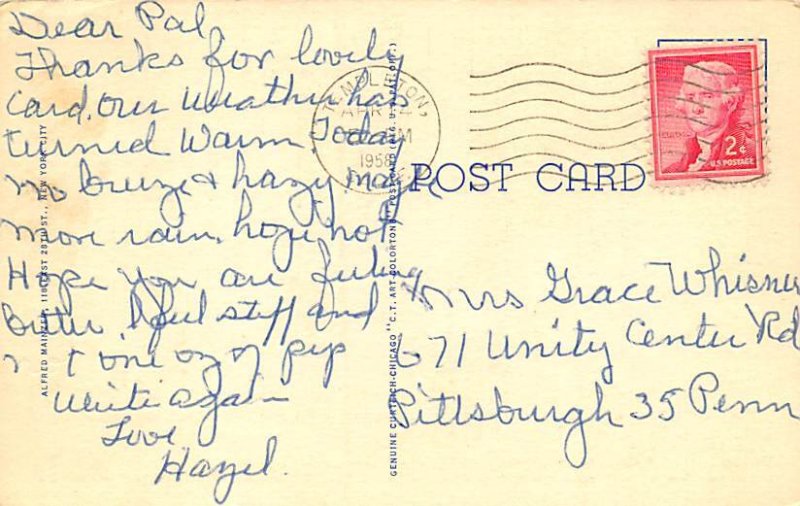 Dear Pal,
Thanks for lovely
card. Our weather has
turned warm. Today
no breeze & hazy, mabe
more rain, hope not.
Hope you are feeling
better. I feel stiff and
not one oz of pep
Write again
Love
Hazel.
ALFRED MAINZER, 118 EAST 28TH ST., NEW YORK CITY
GENUINE CURTEICH-CHICAGO "C.T. ART-COLORTONE" POST CARD (REG. U.S. PAT. OFF.)
TEMPLETON,
APR
PM
1958
POST CARD
2¢
U.S. POSTAGE
Mrs Grace Whisner
671 Unity Center Rd
Pittsburgh 35 Penn